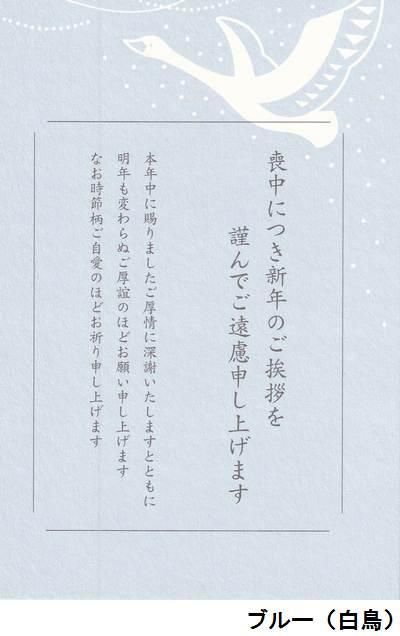 喪中につき新年のご挨拶を
謹んでご遠慮申し上げます
本年中に賜りましたご厚情に深謝いたしますとともに
明年も変わらぬご厚誼のほどお願い申し上げます
なお時節柄ご自愛のほどお祈り申し上げます
ブルー（白鳥）